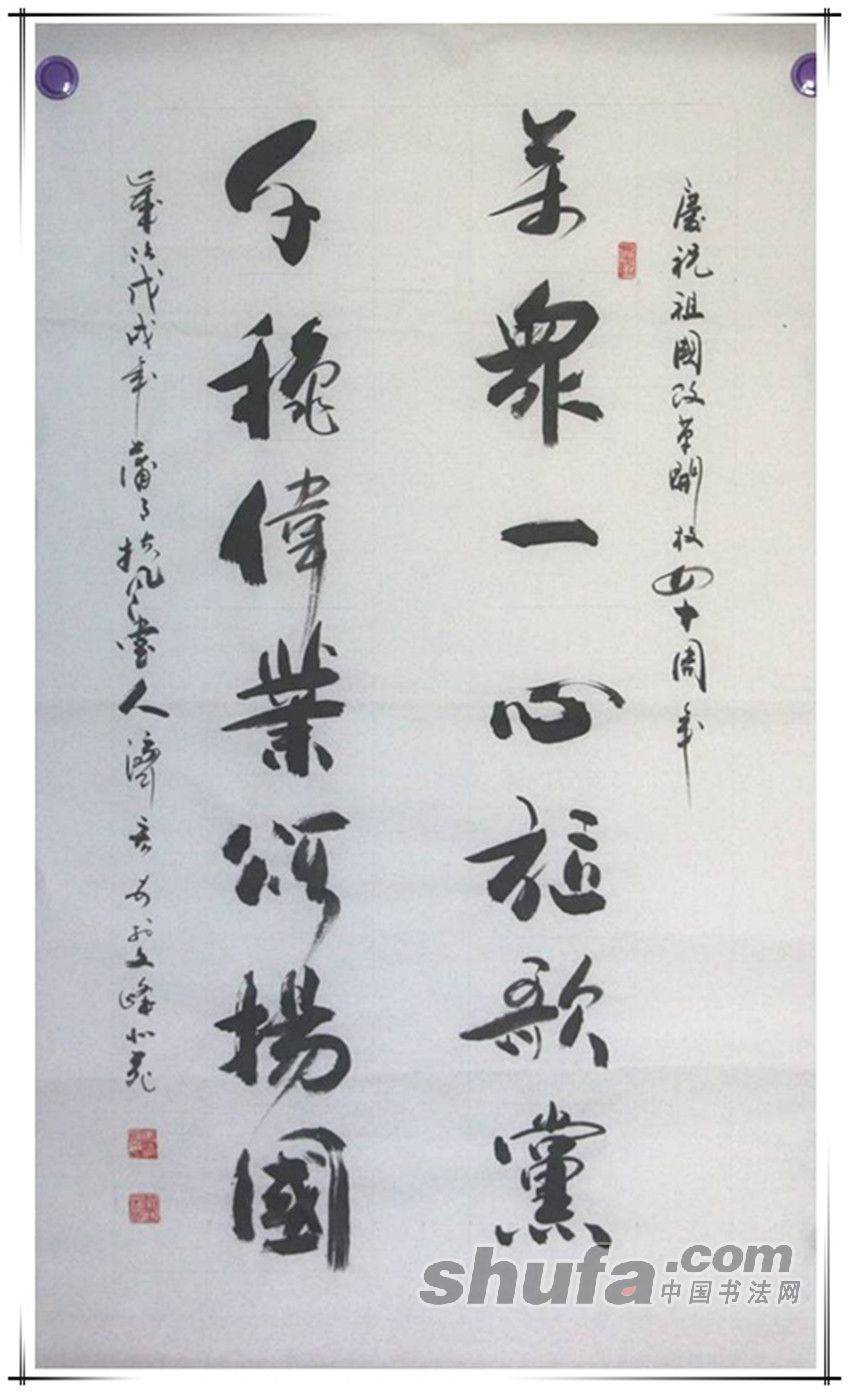 慶祝祖國改革開放四十周年
萬衆一心歌黨
千穐偉業頌揚國
歲次戊戌年蒲月扶風堂人濟言書於文峰北苑
shufa.com
中国书法网